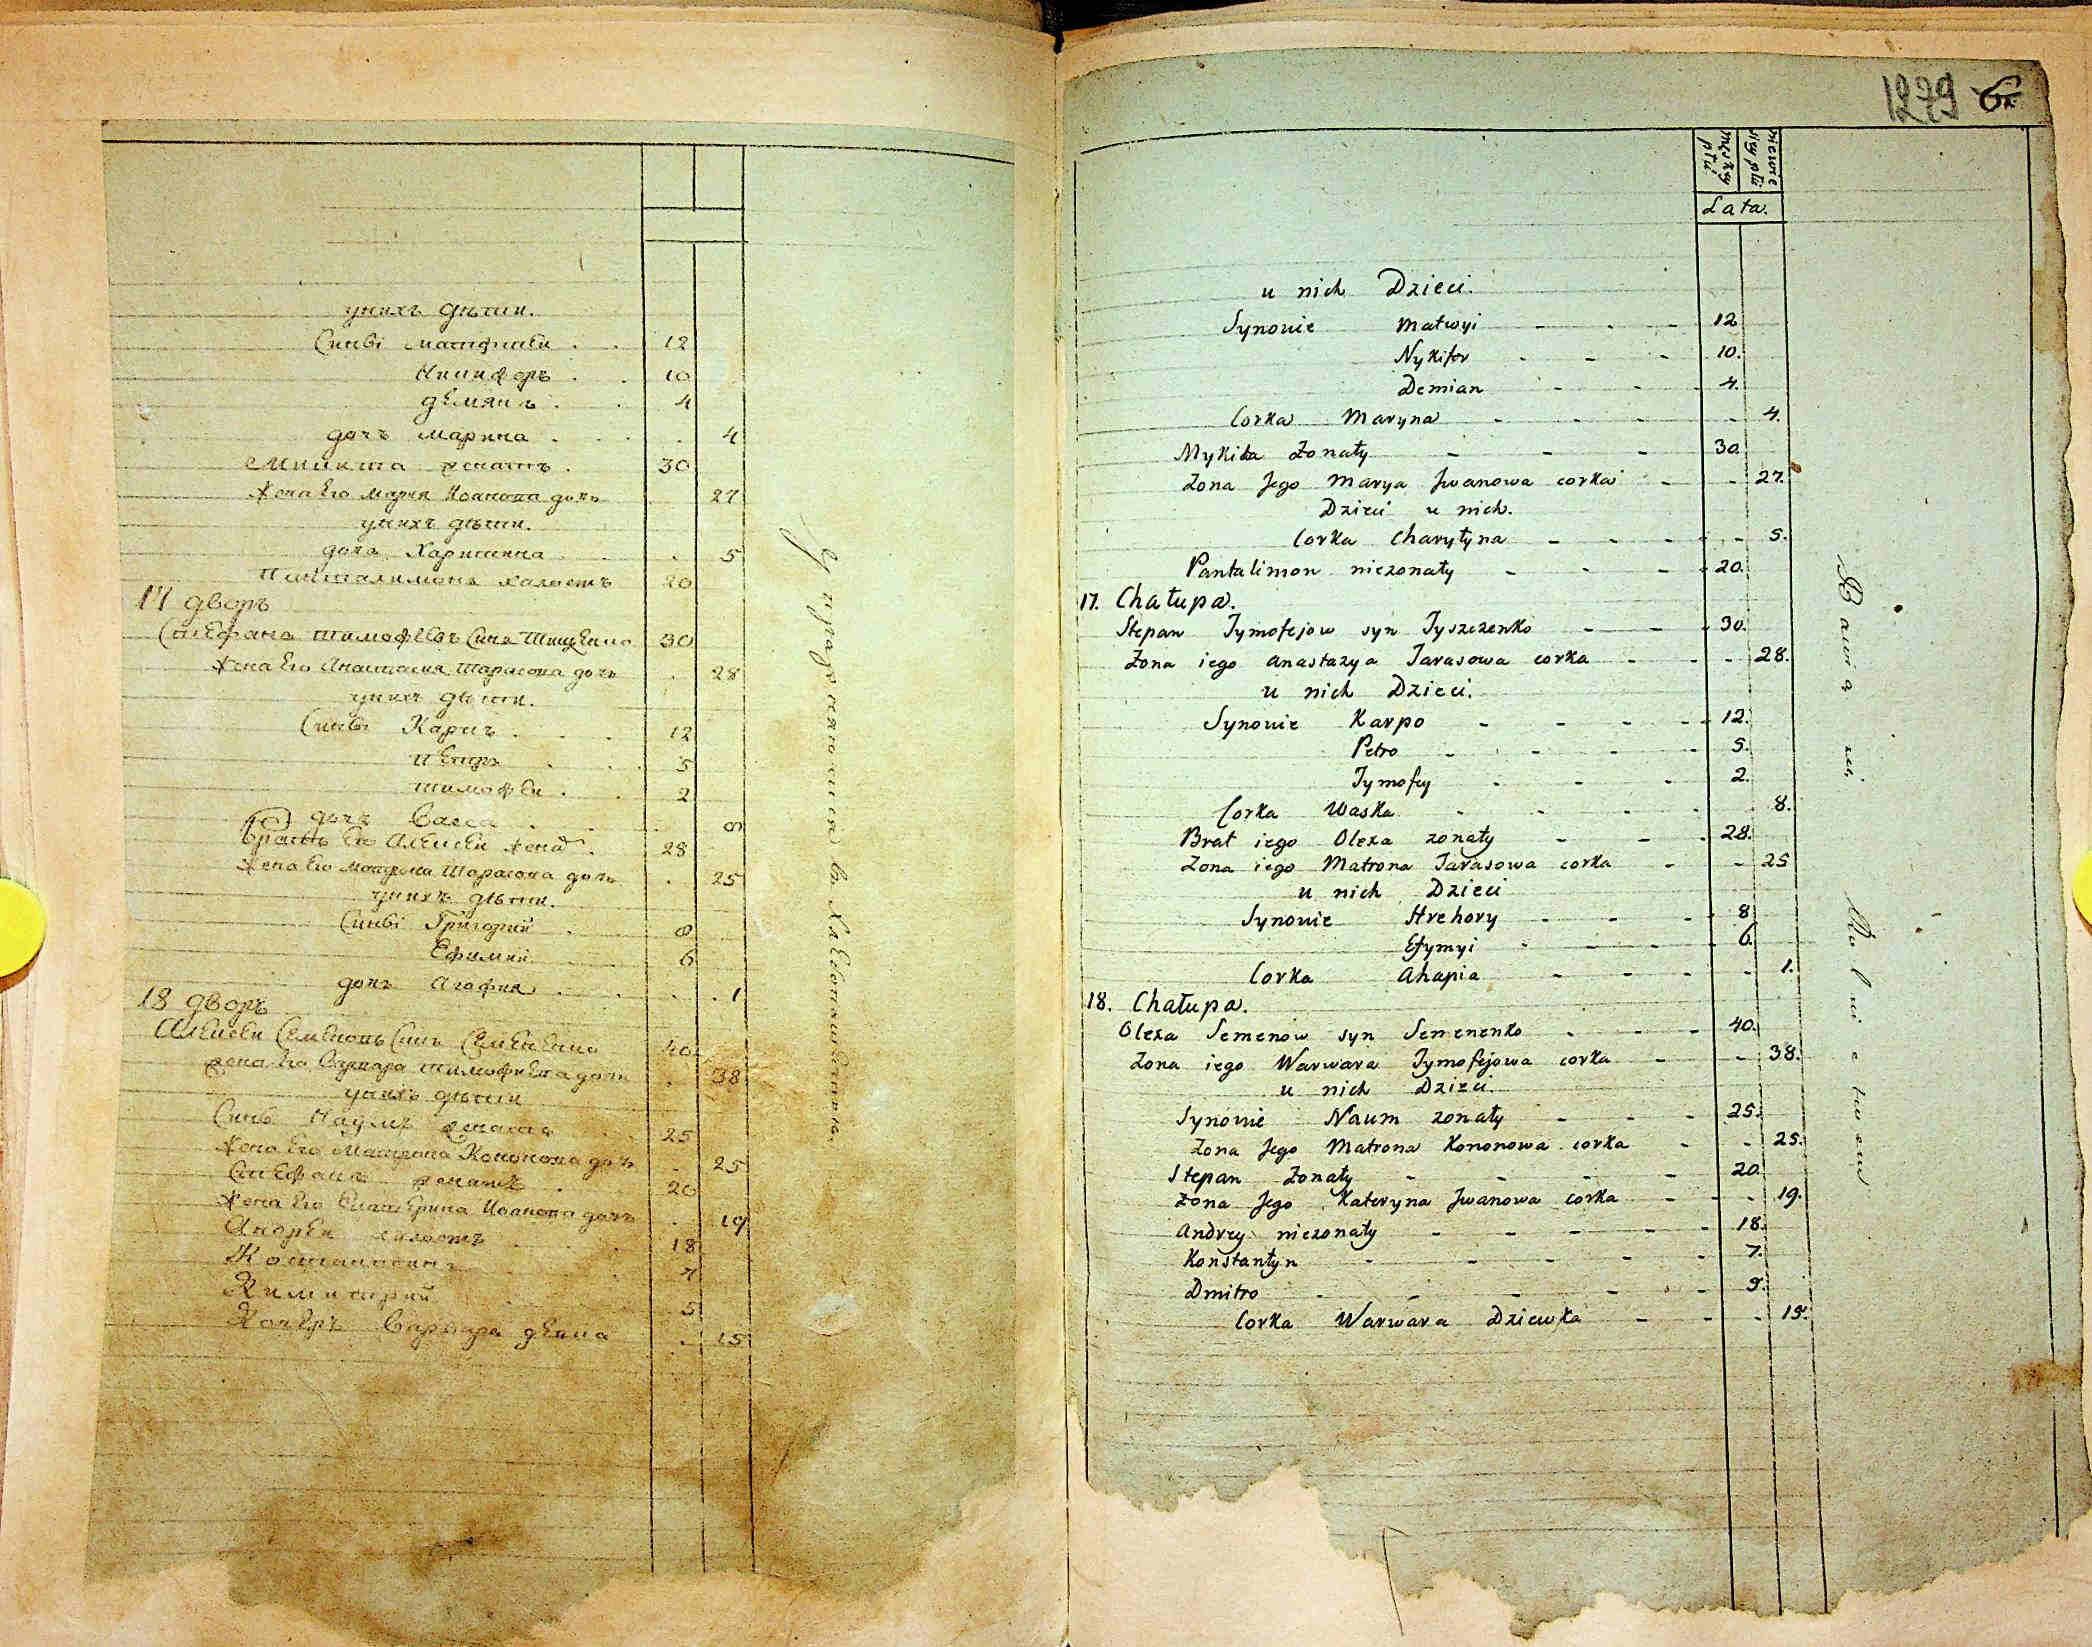 унихъ дѣти.
Синві Матфией . . 12
Никифоръ . . 10
Демянъ . . 4
дочъ Марина . . . 4
Микита женатъ . 30
жена Его Мария Иоанова дочъ 27
унихъ дѣти.
дочъ Харитина . . 5
Панталимонъ халостъ 20
17 дворъ
Стефанъ Тимофеевъ Синъ Тищенко 30
жена Его Анастасия Тарасова дочъ . 28
унихъ дѣти.
Синві Карпъ . . . 12
Петръ . . . 5
Тимофей . . 2
дочъ Васса . . . 8
братъ Его Алексей жена . 28
жена Его Матрона Тарасова дочъ . 25
унихъ дѣти.
Синві Григорий . 8
Ефимий . 6
дочъ Агафия . . . . 1
18 дворъ
Алексей Семеновъ Синъ Семененко 40
жена Его Варвара Тимофиева дочъ . 38
унихъ дѣти
Синъ Наумъ женатъ . . 25
жена Его Матрона Кононова дочъ . 25
Стефанъ женатъ . 20
жена Его Екатерина Иоанова дочъ . 19
Андрей халостъ . . 18
Костантинъ 7
Димитрий 5
Варвара девка . 15
Упражняются въ Хлебопашестве.
1279 6
męzkiy płci
niewieściey płci
Lata.
u nich Dzieci.
Synowie Matwyi - - - 12
Nykifor - - - 10.
Demian - - - 4.
Corka Maryna - - - - 4.
Mykita Żonaty - - - 30
Zona Jego Marya Jwanowa corka - - 27.
Dzieci u nich.
Corka Charytyna - - - - 5.
Pantalimon niezonaty - - - 20.
17. Chałupa.
Stepan Tymofejow syn Tyszczenko - - - 30.
Żona iego Anastazya Tarasowa corka - - - 28.
u nich Dzieci.
Synowie Karpo - - - - 12.
Petro - - - - 5.
Tymofey - - - 2.
Corka Waska - - - - 8.
Brat iego Olexa zonaty - - - 28.
Zona iego Matrona Tarasowa corka - - 25
u nich Dzieci
Synowie Hrehory - - - 8
Efymyi - - - 6.
Corka Ahapia - - - - 1.
18. Chałupa.
Olexa Semenow syn Semenenko - - - 40.
Zona iego Warwara Tymofejowa corka - - 38.
u nich Dzieci.
Synowie Naum zonaty - - - 25.
Zona Jego Matrona Kononowa corka - - 25.
Stepan Żonaty - - - - 20.
Żona Jego Kateryna Jwanowa corka - - - 19.
Andrzy niezonaty - - - - - 18.
Konstantyn - - - - - 7.
Dmitro - - - - - 5.
Corka Warwara Dziewka - - - 15.
Bawią się Rolnictwem